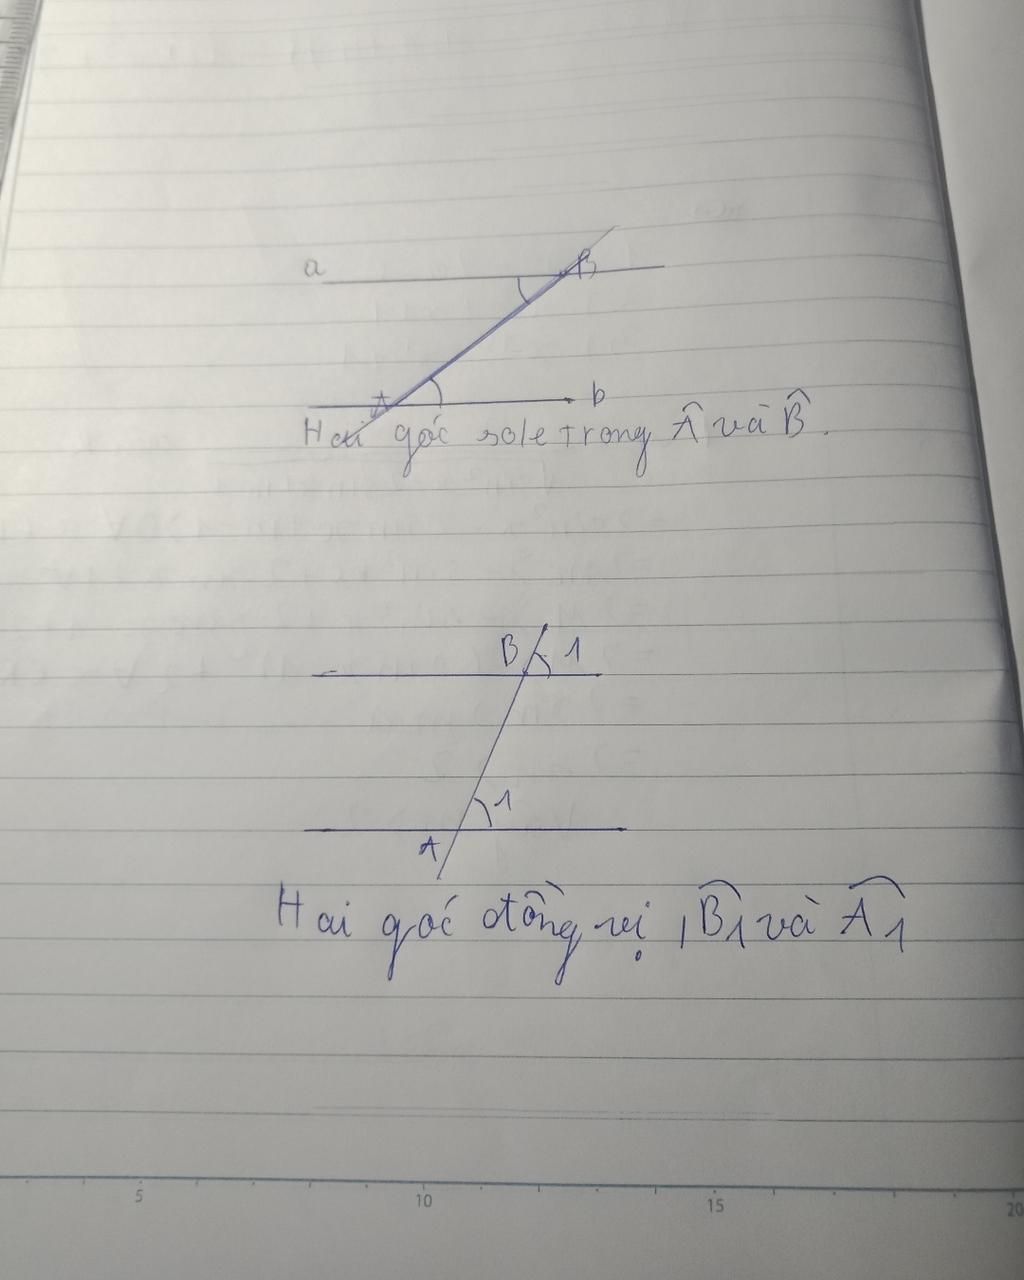 a
B
A
b
Hai góc sole trong Â và B̂.
B 1
1
A
Hai góc đồng vị, B̂1 và Â1
5 10 15 20